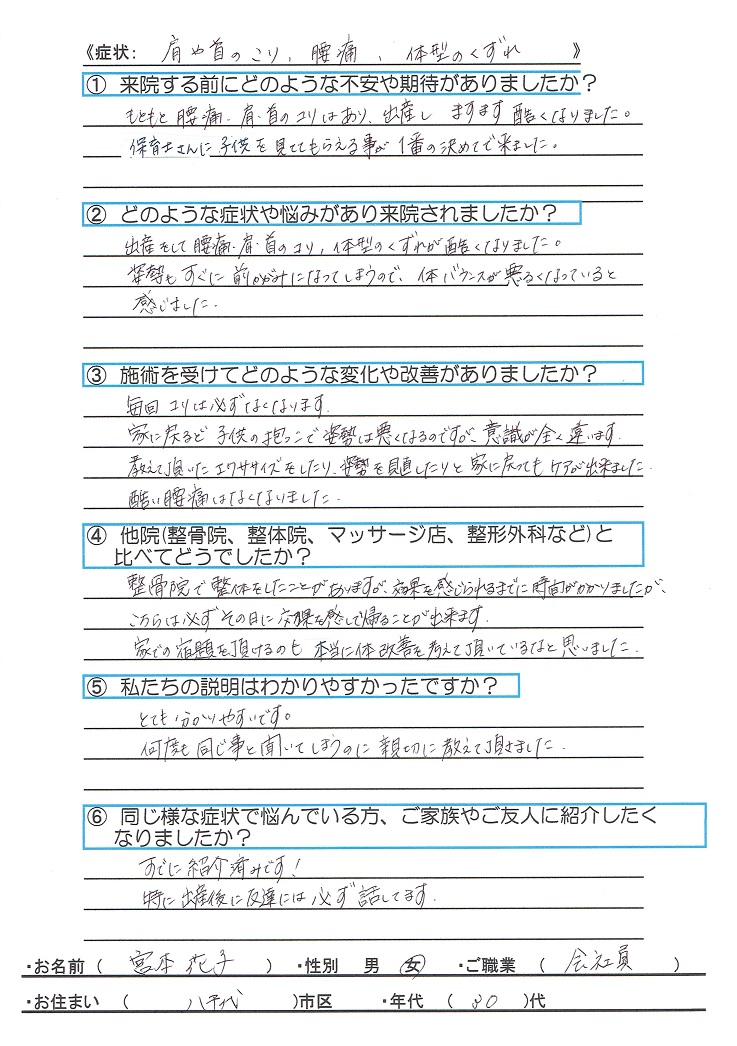 《症状: 肩や首のこり、腰痛、体型のくずれ 》
① 来院する前にどのような不安や期待がありましたか？
もともと腰痛・肩・首のコリはあり、出産し ますます酷くなりました。
保育士さんに子供を見ててもらえる事が 1番の決めてで来ました。
② どのような症状や悩みがあり来院されましたか？
出産をして腰痛・肩・首のコリ、体型のくずれが酷くなりました。
姿勢もすぐに前かがみになってしまうので、体バランスが悪るくなっていると
感じました.
③ 施術を受けてどのような変化や改善がありましたか？
毎回コリは必ずなくなります.
家に戻ると子供の抱っこで姿勢は悪くなるのですが、意識が全く違います.
教えて頂いたエクササイズをしたり、姿勢を見直したりと家に戻ってもケアが出来ました.
酷い腰痛はなくなりました.
④ 他院(整骨院、整体院、マッサージ店、整形外科など)と
比べてどうでしたか？
整骨院で整体をしたことがありますが、効果を感じられるまでに時間がかかりましたが、
こちらは必ずその日に効果を感じて帰ることが出来ます.
家での宿題を頂けるのも 本当に体改善を考えて頂いているなと思いました.
⑤ 私たちの説明はわかりやすかったですか？
とても分かりやすいです。
何度も同じ事と聞いてしまうのに親切に教えて頂きました.
⑥ 同じ様な症状で悩んでいる方、ご家族やご友人に紹介したく
なりましたか？
すでに紹介済みです！
特に出産後に友達には必ず話してます.
・お名前 ( 宮本 花子 ) ・性別 男 女 ・ご職業 ( 会社員 )
・お住まい ( 八千代 )市区 ・年代 ( 30 )代